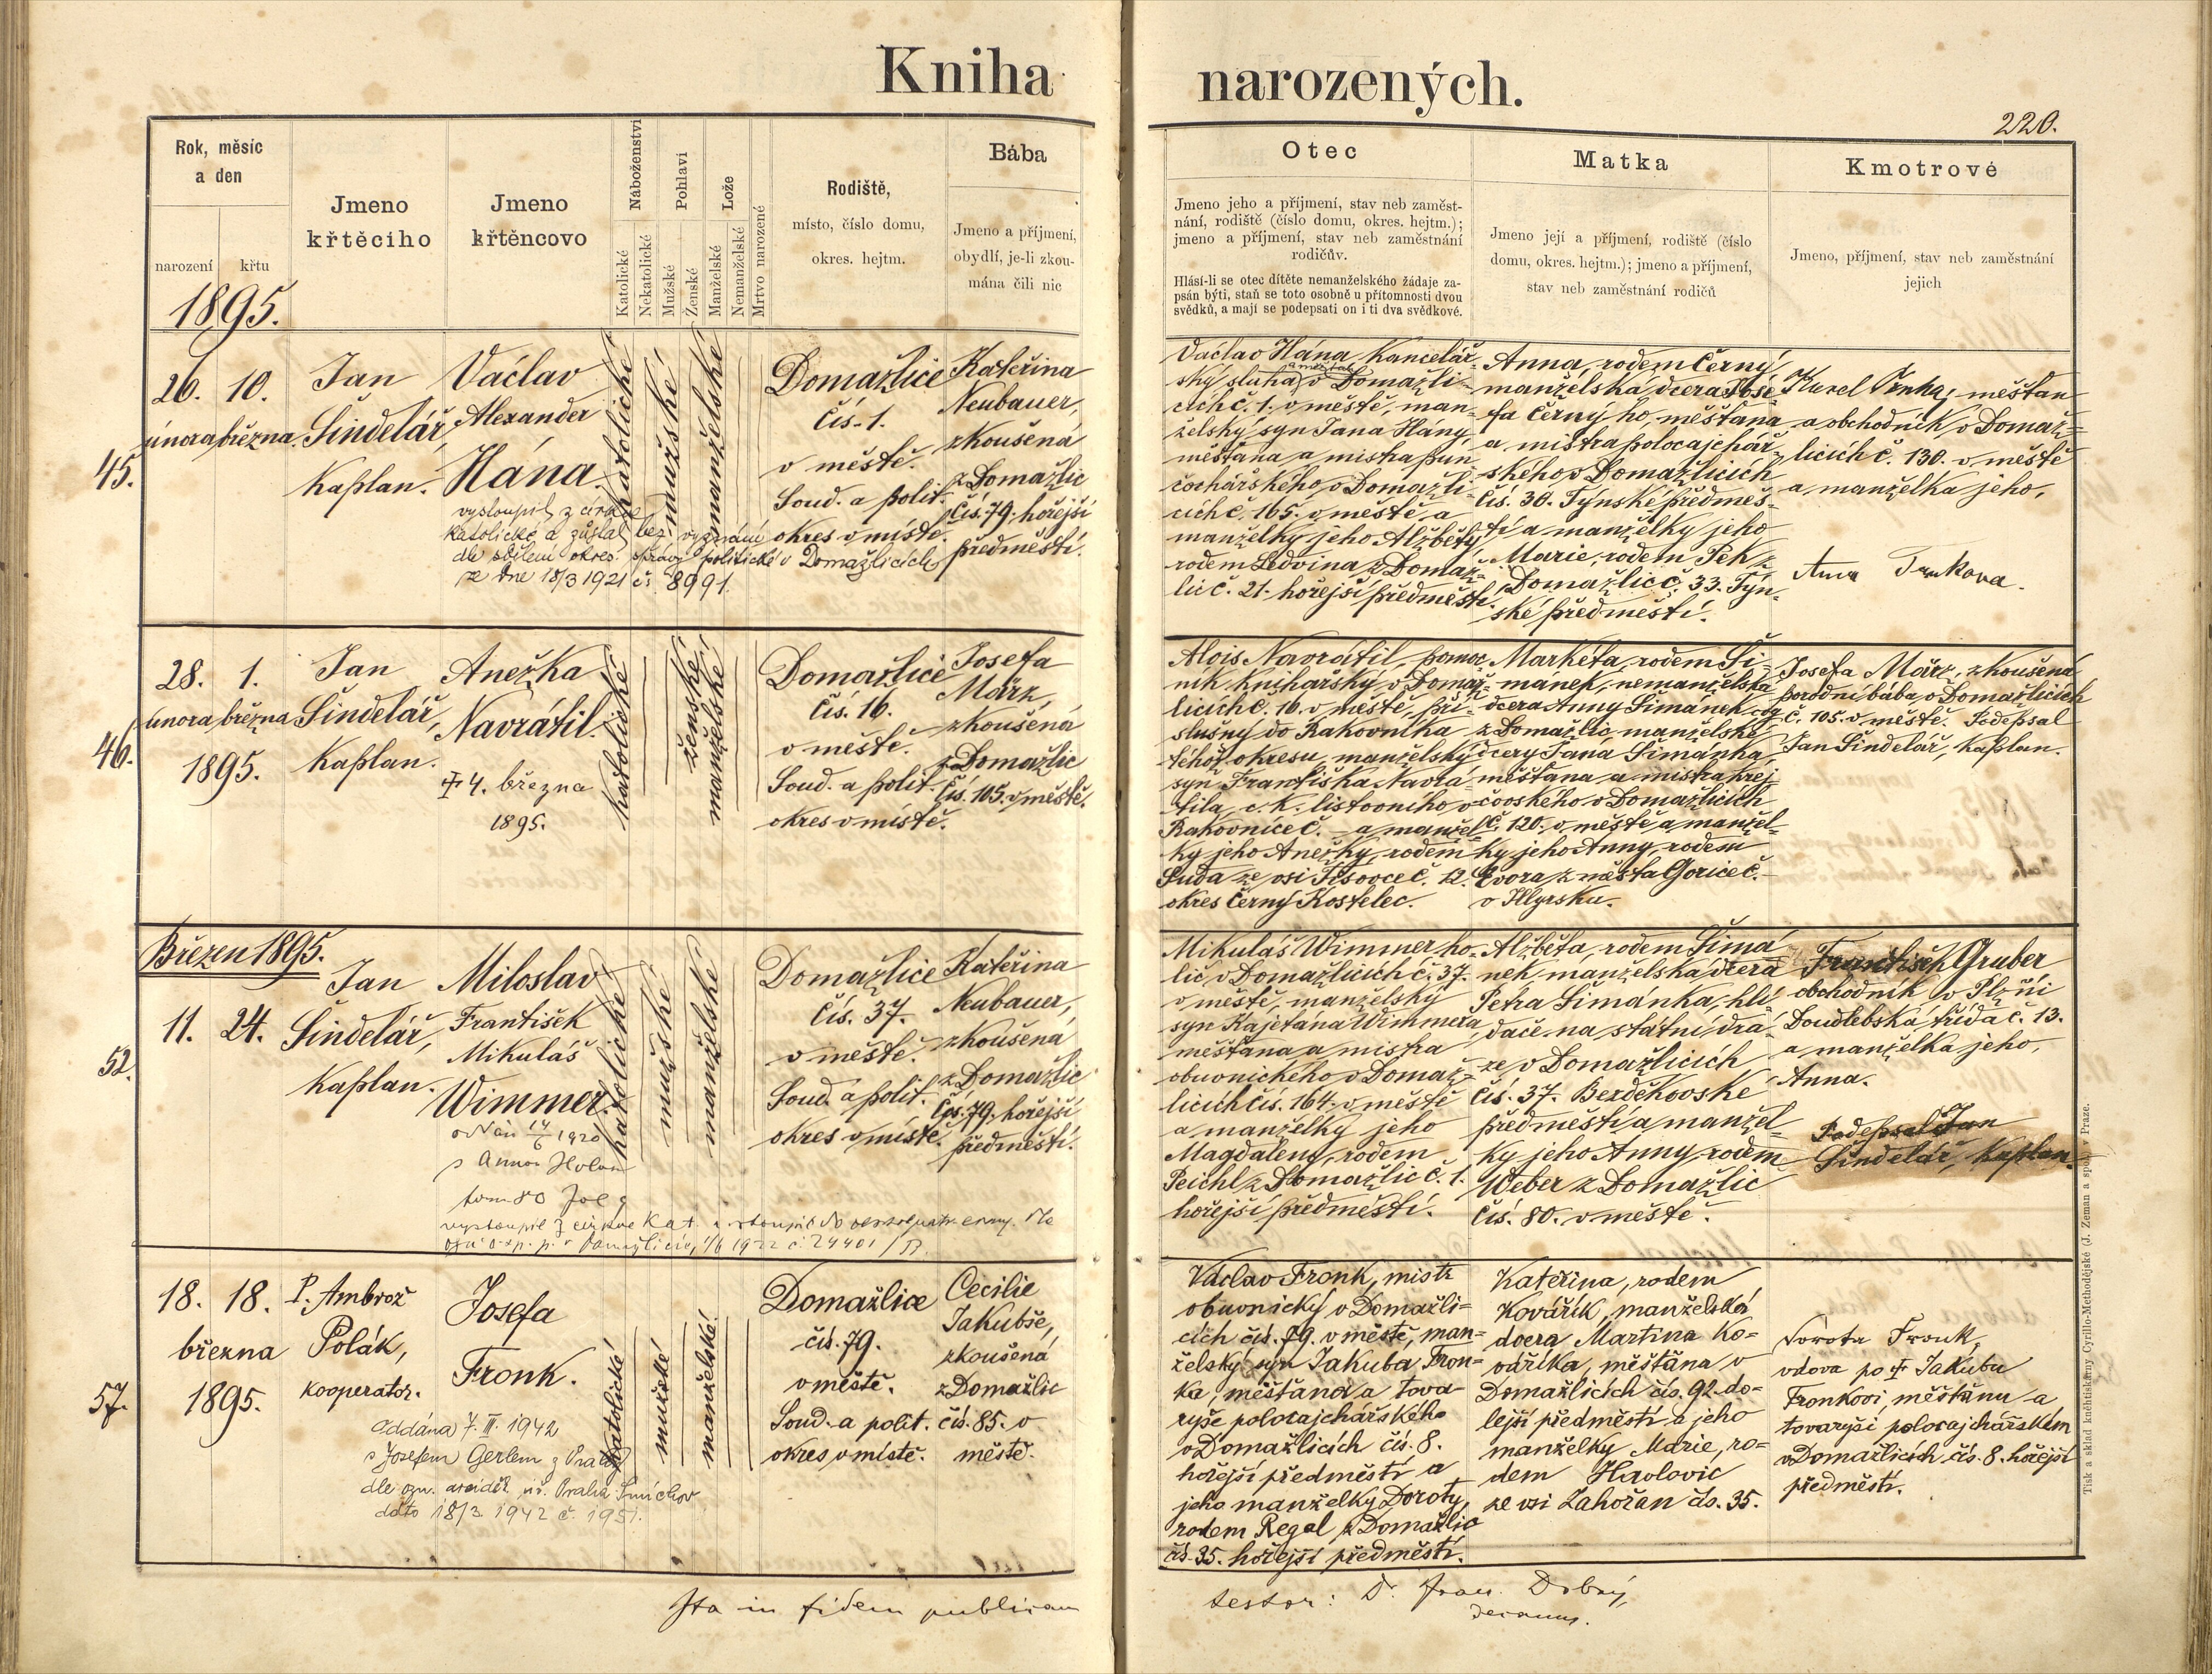 Kniha
narozených.
220.
Rok, měsíc
a den
narození
křtu
1895.
Jmeno
křtěcího
Jmeno
křtěncovo
Náboženství
Katolické
Nekatolické
Pohlaví
Mužské
Ženské
Lože
Manželské
Nemanželské
Mrtvo narozené
Rodiště,
místo, číslo domu,
okres. hejtm.
Bába
Jmeno a příjmení,
obydlí, je-li zkou-
mána čili nic
Otec
Jmeno jeho a příjmení, stav neb zaměst-
nání, rodiště (číslo domu, okres. hejtm.);
jmeno a příjmení, stav neb zaměstnání
rodičův.
Hlásí-li se otec dítěte nemanželského žádaje za-
psán býti, staň se toto osobně u přítomnosti dvou
svědků, a mají se podepsati on i ti dva svědkové.
Matka
Jmeno její a příjmení, rodiště (číslo
domu, okres. hejtm.); jmeno a příjmení,
stav neb zaměstnání rodičů
Kmotrové
Jmeno, příjmení, stav neb zaměstnání
jejich
45.
26. 10.
února března
Jan
Šindelář,
kaplan.
Václav
Alexander
Hána.
vystoupil z církve
katolické a zůstal bez vyznání
dle sdělení okres. správy politické v Domažlicích
ze dne 18/3 1921 č. 8991.
katolické
mužské
manželské
Domažlice
čís. 1.
v městě.
Soud. a polit.
okres v místě.
Kateřina
Neubauer,
zkoušená
z Domažlic
čís. 79. hořejší
předměstí.
Václav Hána kancelář-
ský sluha v Domažli-
cích č. 1. v městě, man-
želský syn Jana Hány,
měšťana a mistra pun-
čochářského v Domažli-
cích č. 165. v městě a
manželky jeho Alžběty
rodem Ledvina z Domaž-
lic č. 21. hořejší předměstí.
Anna, rodem Černý,
manželská dcera Jose-
fa Černýho, měšťana
a mistra polocajchář-
ského v Domažlicích
čís. 30. Týnské předměs-
tí a manželky jeho
Marie, rodem Pek z
Domažlic č. 33. Týn-
ské předměstí.
Karel měšťan
a obchodník v Domaž-
licích č. 130. v městě
a manželka jeho,
Anna
46.
28. 1.
února března
1895.
Jan
Šindelář,
kaplan.
Anežka
Navrátil.
† 4. března
1895.
katolické
ženské
manželské
Domažlice
čís. 16.
v městě.
Soud. a polit.
okres v místě.
Josefa
März,
zkoušená
z Domažlic
čís. 105. v městě.
Alois Navrátil, pomoc-
ník knihařský v Domaž-
licích č. 16. v městě, pří-
slušný do Rakovníka
téhož okresu, manželský
syn Františka Navrá-
tila, c. k. listovního v
Rakovníce č. — a manžel-
ky jeho Anežky, rodem
Suda ze vsi Tisovce č. 12.
okres Černý Kostelec.
Markéta, rodem Ši-
mánek, nemanželská
dcera Anny Šimánek
z Domažlic, manželské
dcery Jana Šimánka,
měšťana a mistra krej-
čovského v Domažlicích
č. 120. v městě a manžel-
ky jeho Anny, rodem
z města Gorice č. —
v Illyrsku.
Josefa März, zkoušená
porodní bába v Domažlicích
č. 105. v městě. Podepsal
Jan Šindelář, kaplan.
Březen 1895.
52.
11. 24.
Jan
Šindelář,
kaplan.
Miloslav
František
Mikuláš
Wimmer.
1920
s Annou
katolické
mužské
manželské
Domažlice
čís. 37.
v městě.
Soud. a polit.
okres v místě.
Kateřina
Neubauer,
zkoušená
z Domažlic
čís. 79. hořejší
předměstí.
Mikuláš Wimmer, ho-
lič v Domažlicích č. 37.
v městě, manželský
syn Kajetána Wimmera,
měšťana a mistra
obuvnického v Domaž-
licích čís. 164. v městě
a manželky jeho
Magdaleny, rodem
Peichl z Domažlic č. 1.
hořejší předměstí.
Alžběta, rodem Šimá-
nek manželská dcera
Petra Šimánka, hlí-
dače na státní drá-
ze v Domažlicích
čís. 37. Bezděkovské
předměstí a manžel-
ky jeho Anny, rodem
Weber z Domažlic
čís. 80. v městě.
František Gruber
obchodník v Plzni
Doudlebská třída č. 13.
a manželka jeho,
Anna.
Podepsal Jan
Šindelář, kaplan.
57.
18. 18.
března
1895.
P. Ambrož
Polák,
kooperator.
Josefa
Fronk.
Oddána 7. III. 1942
s Josefem Gerlem z Prahy
dle ozn. úř. Praha Smíchov
dato 18/3 1942 č. 1951.
katolické
mužské
manželské
Domažlice
čís. 79.
v městě.
Soud. a polit.
okres v místě.
Cecilie
Jakubše,
zkoušená
z Domažlic
čís. 85. v
městě.
Václav Fronk, mistr
obuvnický v Domažli-
cích čís. 79. v městě, man-
želský syn Jakuba Fron-
ka, měšťana a tova-
ryše polocajchářského
v Domažlicích čís. 8.
hořejší předměstí a
jeho manželky Doroty,
rodem Regal z Domažlic
čís. 35. hořejší předměstí.
Kateřina, rodem
Kovářík, manželská
dcera Martina Ko-
váříka, měšťana v
Domažlicích čís. 92. do-
lejší předměstí a jeho
manželky Marie, ro-
dem Havlovic
ze vsi Zahořan čs. 35.
Dorota Fronk,
vdova po † Jakubu
Fronkovi, měšťanu a
tovaryši polocajchářském
v Domažlicích čís. 8. hořejší
předměstí.
Ita in fidem publicam
testor: Dr. Fran. Dobrý,
decanus.
Tisk a sklad knihtiskárny Cyrillo-Methodějské (J. Zeman a spol.) v Praze.